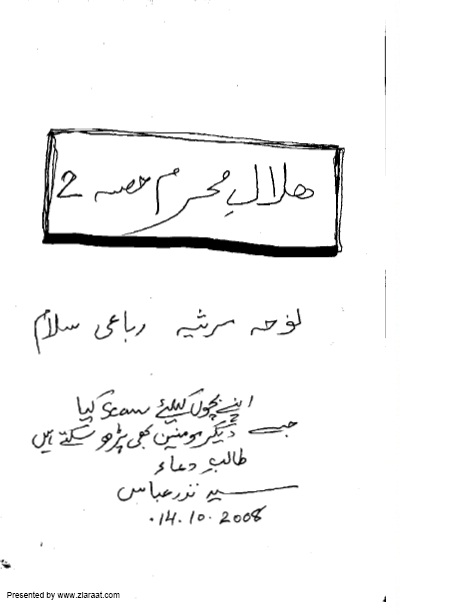 ھلالِ محرم حصہ 2
نوحہ مرثیہ رباعی سلام
اپنے بچوں کیلئے Scan کیا
جسے دیگر مومنین بھی پڑھ سکتے ہیں
طالبِ دعاء
سید نذر عباس
14.10.2008
Presented by www.ziaraat.com